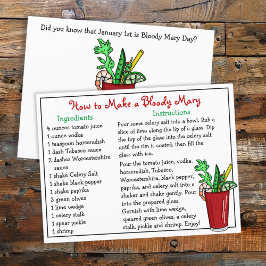 Did you know that January 1st is Bloody Mary Day?
How to Make a Bloody Mary
Ingredients
4 ounces tomato juice
1 ounce vodka
1 teaspoon horseradish
1 dash Tabasco sauce
2 dashes Worcestershire
sauce
1 shake Celery Salt
1 shake black pepper
1 shake paprika
3 green olives
1 lime wedge
1 celery stalk
1 spear pickle
1 shrimp
Instructions
Pour some celery salt into a bowl. Rub a
slice of lime along the lip of a glass. Dip
the top of the glass into the celery salt
until the rim is coated, then fill the
glass with ice.
Pour the tomato juice, vodka,
horseradish, Tabasco,
Worcestershire, black pepper,
paprika, and celery salt into a
shaker and shake gently. Pour
into the prepared glass.
Garnish with lime wedge,
speared green olives, a celery
stalk, pickle and shrimp. Enjoy!